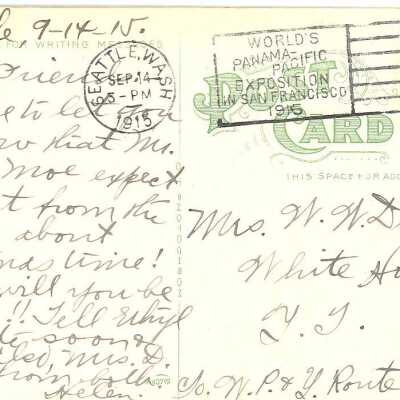 le 9-14-15.
FOR WRITING MESSAGES
Friend
e to let you
ow that Mr.
Moe expect
t from the
about
mas time!
will you be
!! Tell Ethyl
te soon
also, Mrs. D.
from both.
Helen.
SEATTLE, WASH.
SEP 14
5-PM
1915
WORLD'S
PANAMA-PACIFIC
EXPOSITION
IN SAN FRANCISCO
1915
POST
CARD
THIS SPACE FOR ADD
Mrs. W. W. D
White Ho
Y. T.
W. P. & Y. Route